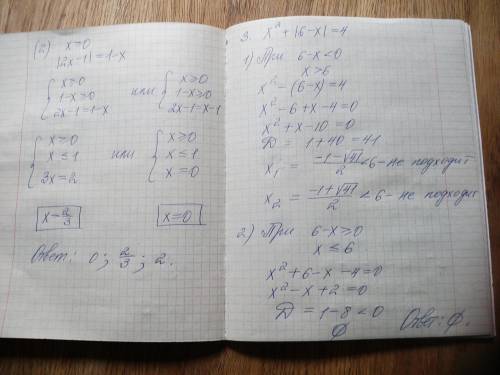 (2) x=0
|2x-1|=1-x
{ x≥0
1-x≥0
2x-1=1-x
или
{ x≥0
1-x≥0
2x-1=x-1
{ x≥0
x≤1
3x=2
или
{ x≥0
x≤1
x=0
x=2/3
x=0
Ответ: 0; 2/3; 2.
3. x²+|6-x|=4
1) При 6-x<0
x>6
x²-(6-x)=4
x²-6+x-4=0
x²+x-10=0
D=1+40=41
x₁=(-1-√41)/2<6-не подходит
x₂=(-1+√41)/2<6-не подходит
2) При 6-x≥0
x≤6
x²+6-x-4=0
x²-x+2=0
D=1-8<0
∅ Ответ: ∅.